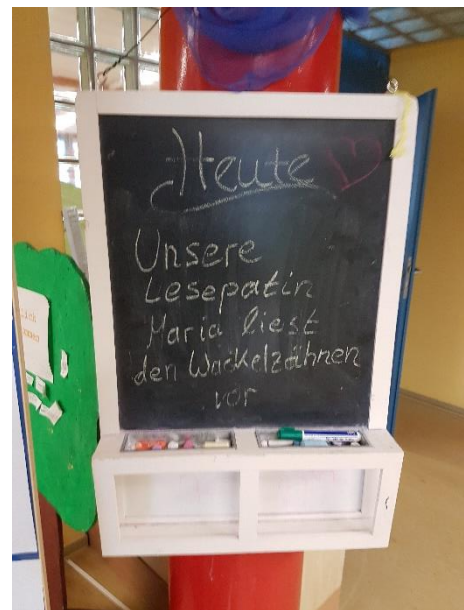 Heute
Unsere
Lesepatin
Maria liest
den Wackelzähnen
vor